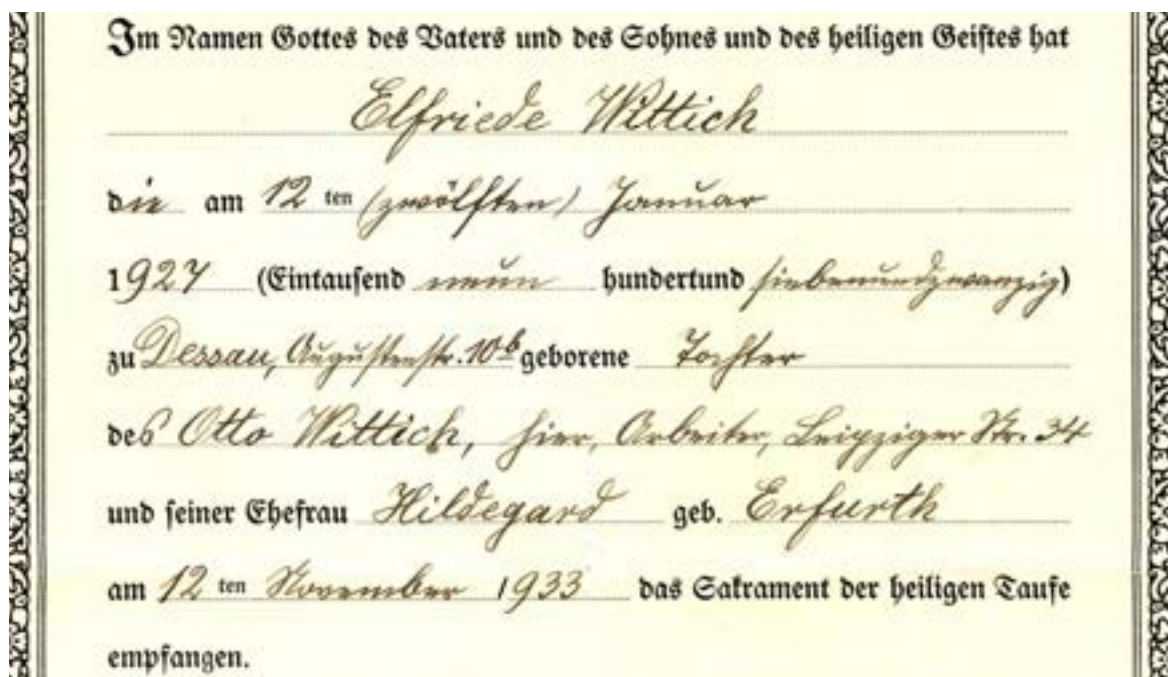 Im Namen Gottes des Vaters und des Sohnes und des heiligen Geistes hat
Elfriede Wittich
die am 12 ten (zwölften) Januar
1927 (Eintausend neun hundertund siebenundzwanzig)
zu Dessau, Augustenstr. 10b geborene Tochter
des Otto Wittich, hier, Arbeiter, Leipziger Str. 34
und seiner Ehefrau Hildegard geb. Erfurth
am 12 ten November 1933 das Sakrament der heiligen Taufe
empfangen.